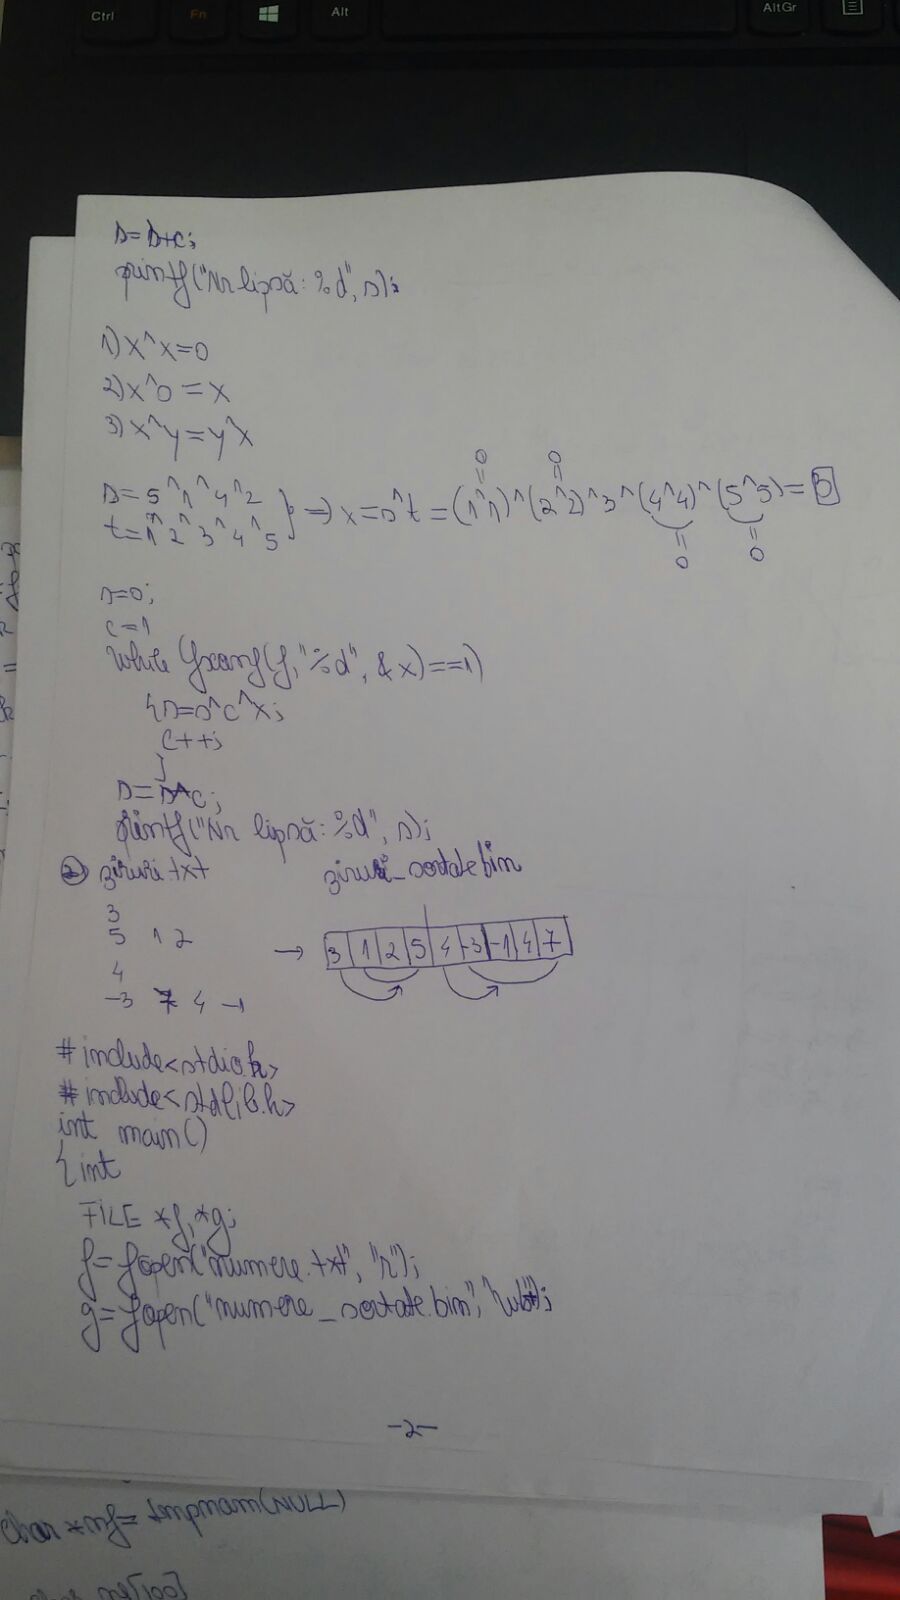 Ctrl Fn Alt AltGr
s=s+c;
printf("Nr lipsă: %d", s);
1) x^x=0
2) x^0=x
3) x^y=y^x
0 0
s=5^1^4^2
t=1^2^3^4^5 } => x=s^t=(1^1)^(2^2)^3^(4^4)^(5^5)=3
0 0
s=0;
c=1
while (fscanf(f,"%d", &x)==1)
{s=s^c^x;
c++;
}
s=s^c;
printf("Nr lipsă: %d", s);
② șiruri.txt șiruri_sortate.bin
3
5 1 2
→ 3 1 2 5 4 -3 -1 4 7
4
-3 7 4 -1
#include<stdio.h>
#include<stdlib.h>
int main()
{int
FILE *f,*g;
f=fopen("numere.txt", "r");
g=fopen("numere_sortate.bin", "wb");
-2-
char *nf= tmpnam(NULL)
[100]